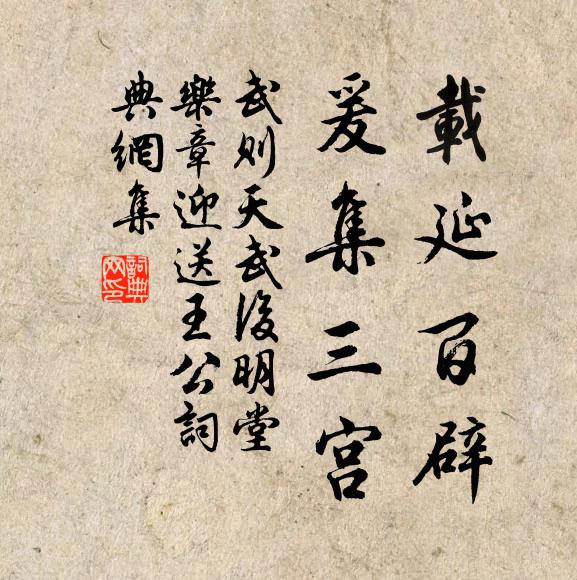 載延百辟
爰集三宮
武則天武後明堂
樂章迎送王公詞
典網集
詞典網印